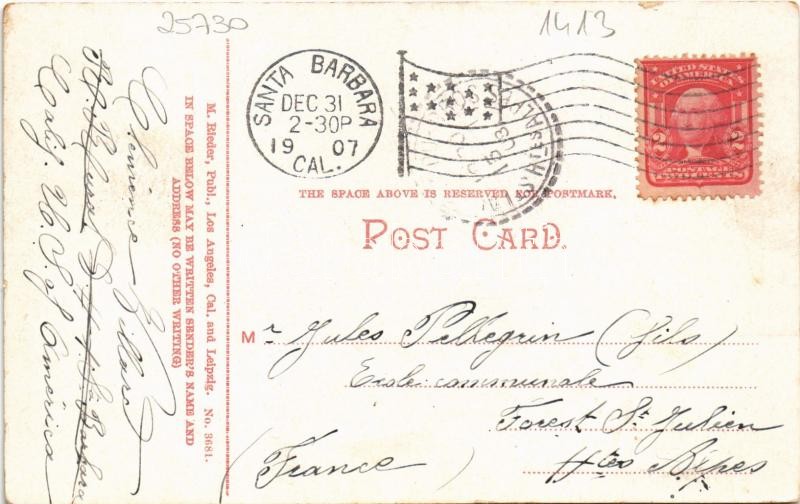 25730
1413
SANTA BARBARA
DEC 31
2-30P
1907
CAL.
UNITED STATES
OF AMERICA
2 2
POSTAGE
TWO CENTS
THE SPACE ABOVE IS RESERVED FOR POSTMARK.
POST CARD.
Mr Jules Pellegrin (fils)
Ecole communale
Forest St Julien
Htes Alpes
(France)
M. Rieder, Publ., Los Angeles, Cal. and Leipzig. No. 3681.
IN SPACE BELOW MAY BE WRITTEN SENDER'S NAME AND
ADDRESS (NO OTHER WRITING)
Clémence Villard
St Barbara
Calif. U. S. of América